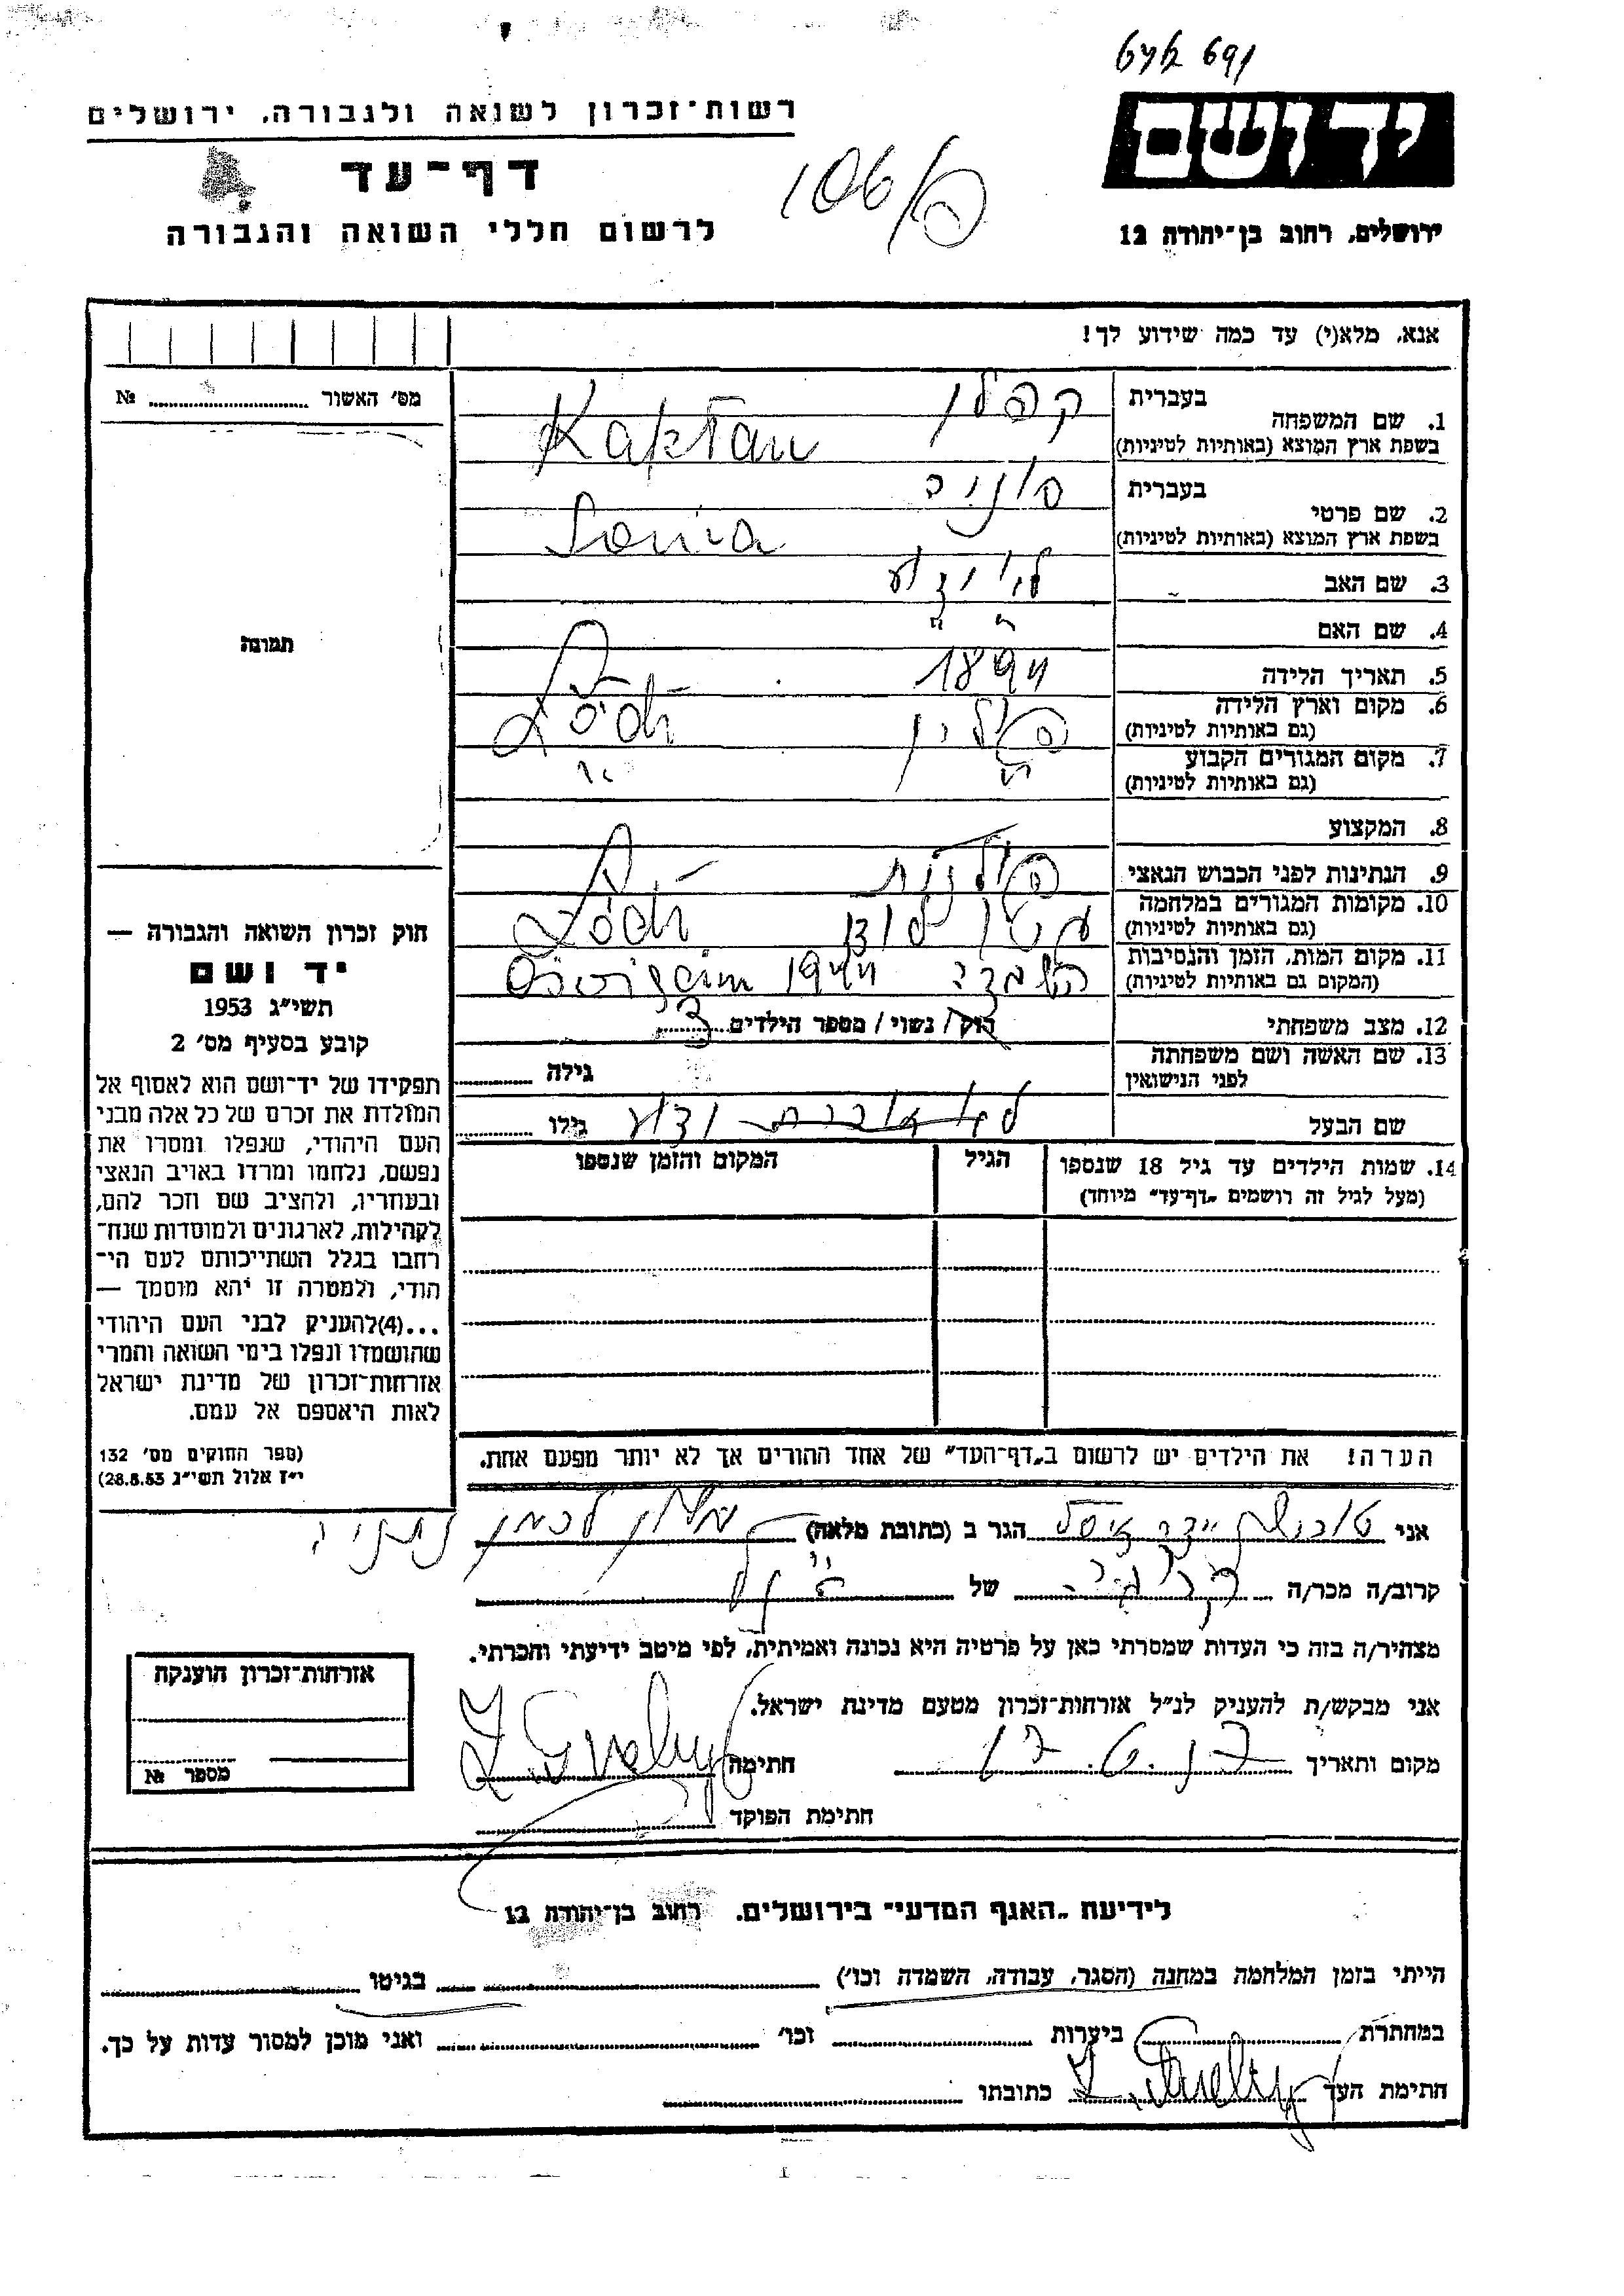 רשות-זכרון לשואה ולגבורה, ירושלים
דף-עד
לרשום חללי השואה והגבורה
יד ושם
ירושלים, רחוב בן-יהודה 12
אנא, מלא(י) עד כמה שידוע לך!
מס' האשור № 
1. שם המשפחה בעברית קפלן
בשפת ארץ המוצא (באותיות לטיניות) Kapłan
2. שם פרטי בעברית סוניה
בשפת ארץ המוצא (באותיות לטיניות) Sonia
3. שם האב לא ידוע
4. שם האם " "
5. תאריך הלידה 1894
6. מקום וארץ הלידה פולין Łódź
(גם באותיות לטיניות)
7. מקום המגורים הקבוע
(גם באותיות לטיניות)
8. המקצוע
9. הנתינות לפני הכבוש הנאצי פולנית
10. מקומות המגורים במלחמה גטו לודז Łódź
(גם באותיות לטיניות)
11. מקום המות, הזמן והנסיבות 1944 Oświęcim
(המקום גם באותיות לטיניות)
12. מצב משפחתי רוק/ נשוי/ מספר הילדים
13. שם האשה ושם משפחתה גילה
לפני הנישואין
שם הבעל לא ידוע גילו
14. שמות הילדים עד גיל 18 שנספו הגיל המקום והזמן שנספו
(מעל לגיל זה רושמים "דף-עד" מיוחד)
הערה! את הילדים יש לרשום ב"דף-העד" של אחד ההורים אך לא יותר מפעם אחת.
תמונה
חוק זכרון השואה והגבורה —
יד ושם
תשי"ג 1953
קובע בסעיף מס' 2
תפקידו של יד-ושם הוא לאסוף אל
המולדת את זכרם של כל אלה מבני
העם היהודי, שנפלו ומסרו את
נפשם, נלחמו ומרדו באויב הנאצי
ובעוזריו, ולהציב שם וזכר להם,
לקהילות, לארגונים ולמוסדות שנח-
רבו בגלל השתייכותם לעם הי-
הודי, ולמטרה זו יהא מוסמך —
...(4)להעניק לבני העם היהודי
שהושמדו ונפלו בימי השואה והמרי
אזרחות-זכרון של מדינת ישראל
לאות היאספם אל עמם.
(ספר החוקים מס' 132
י"ז אלול תשי"ג 28.8.53)
אני הגר ב (כתובת מלאה) נתניה
קרוב/ה מכר/ה של
מצהיר/ה בזה כי העדות שמסרתי כאן על פרטיה היא נכונה ואמיתית, לפי מיטב ידיעתי והכרתי.
אני מבקש/ת להעניק לנ"ל אזרחות-זכרון מטעם מדינת ישראל.
מקום ותאריך חתימה
חתימת הפוקד
אזרחות-זכרון הוענקה
מספר №
לידיעת "האגף המדעי" בירושלים, רחוב בן-יהודה 12
הייתי בזמן המלחמה במחנה (הסגר, עבודה, השמדה וכו') בגיטו
במחתרת ביערות וכו' ואני מוכן למסור עדות על כך.
חתימת העד כתובתו